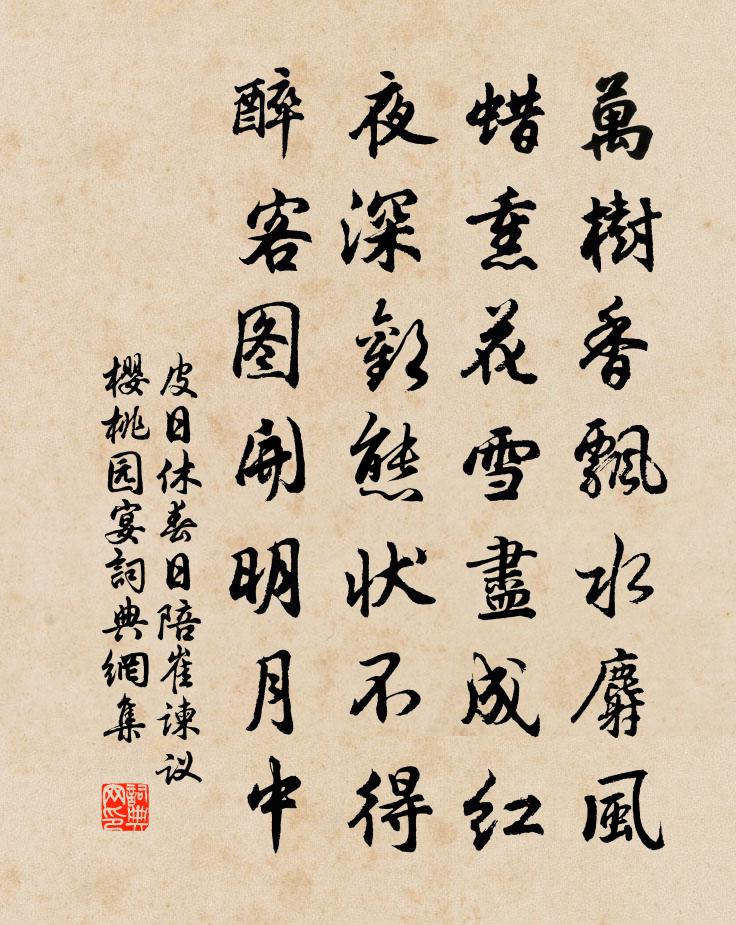 萬樹香飄水麝風
蜡熏花雪盡成紅
夜深歡態狀不得
醉客图開明月中
皮日休春日陪崔諫议
櫻桃园宴詞典網集
詞典
网印